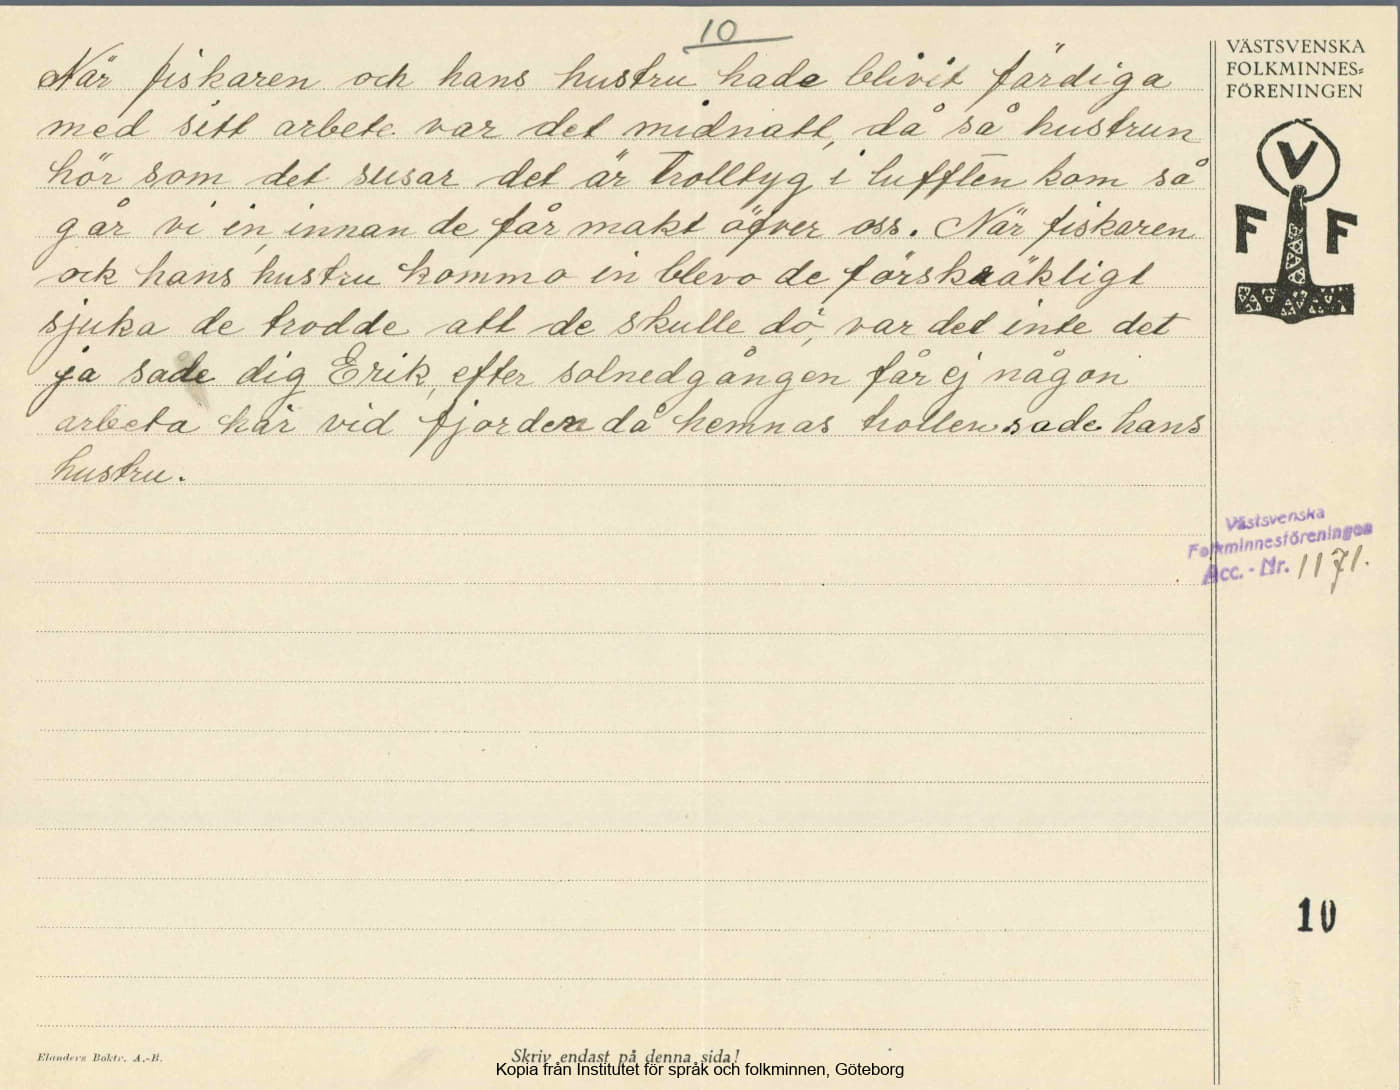 10
När fiskaren och hans hustru hade blivit färdiga
med sitt arbete var det midnatt, då så hustrun
hör som det susar det är trolltyg i lufften kom så
går vi in, innan de får makt öfver oss. När fiskaren
ock hans hustru kommo in blevo de förskräkligt
sjuka de trodde att de skulle dö, var det inte det
ja sade dig Erik, efter solnedgången får ej någon
arbeta här vid fjorden då hemnas trollen sade hans
hustru.
VÄSTSVENSKA
FOLKMINNES=
FÖRENINGEN
V
F F
Västsvenska
Folkminnesföreningen
Acc. - Nr. 1171.
10
Elanders Boktr. A.-B.
Skriv endast på denna sida!
Kopia från Institutet för språk och folkminnen, Göteborg